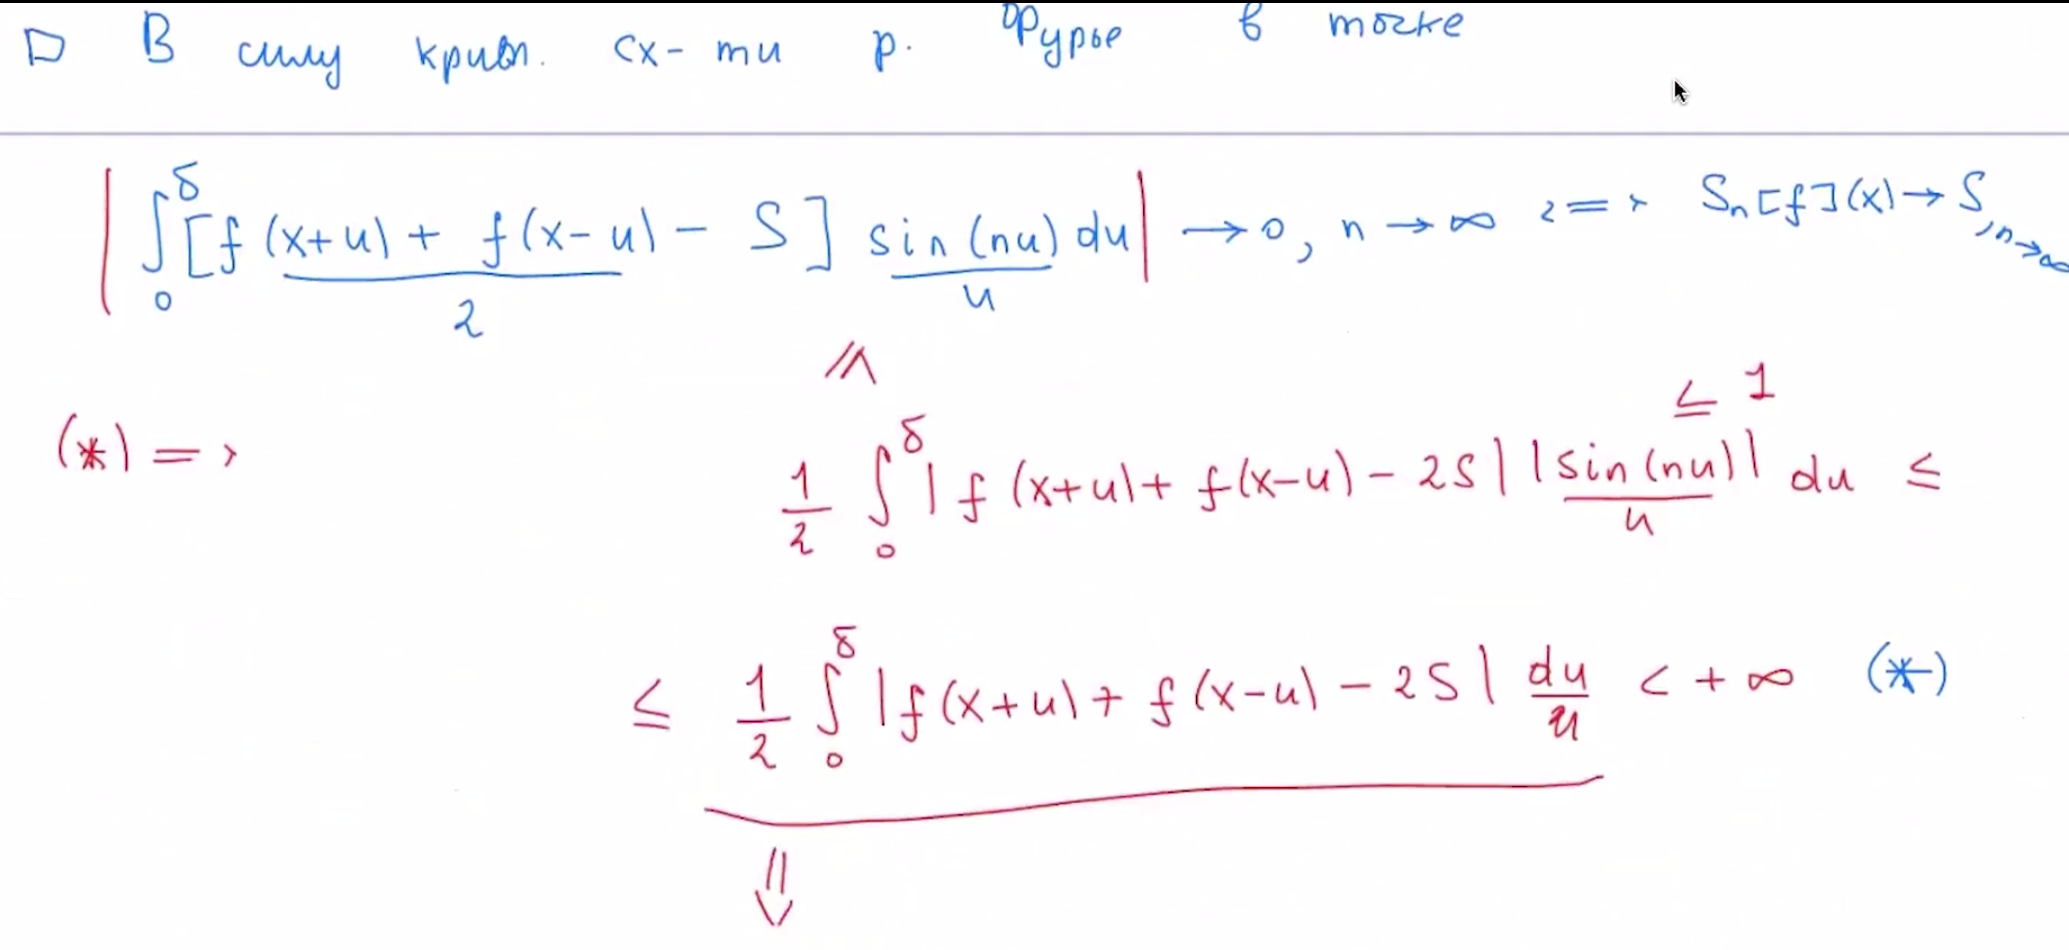 ▷ В силу крит. сх-ти р. Фурье в точке
| ∫_0^δ [ (f(x+u) + f(x-u))/2 - S ] sin(nu)/u du | → 0, n → ∞ <=> S_n[f](x) → S, n→∞
/∧
≤ 1
(*) => 1/2 ∫_0^δ | f(x+u) + f(x-u) - 2S | |sin(nu)|/u du ≤
≤ 1/2 ∫_0^δ | f(x+u) + f(x-u) - 2S | du/u < +∞ (*)
⇓